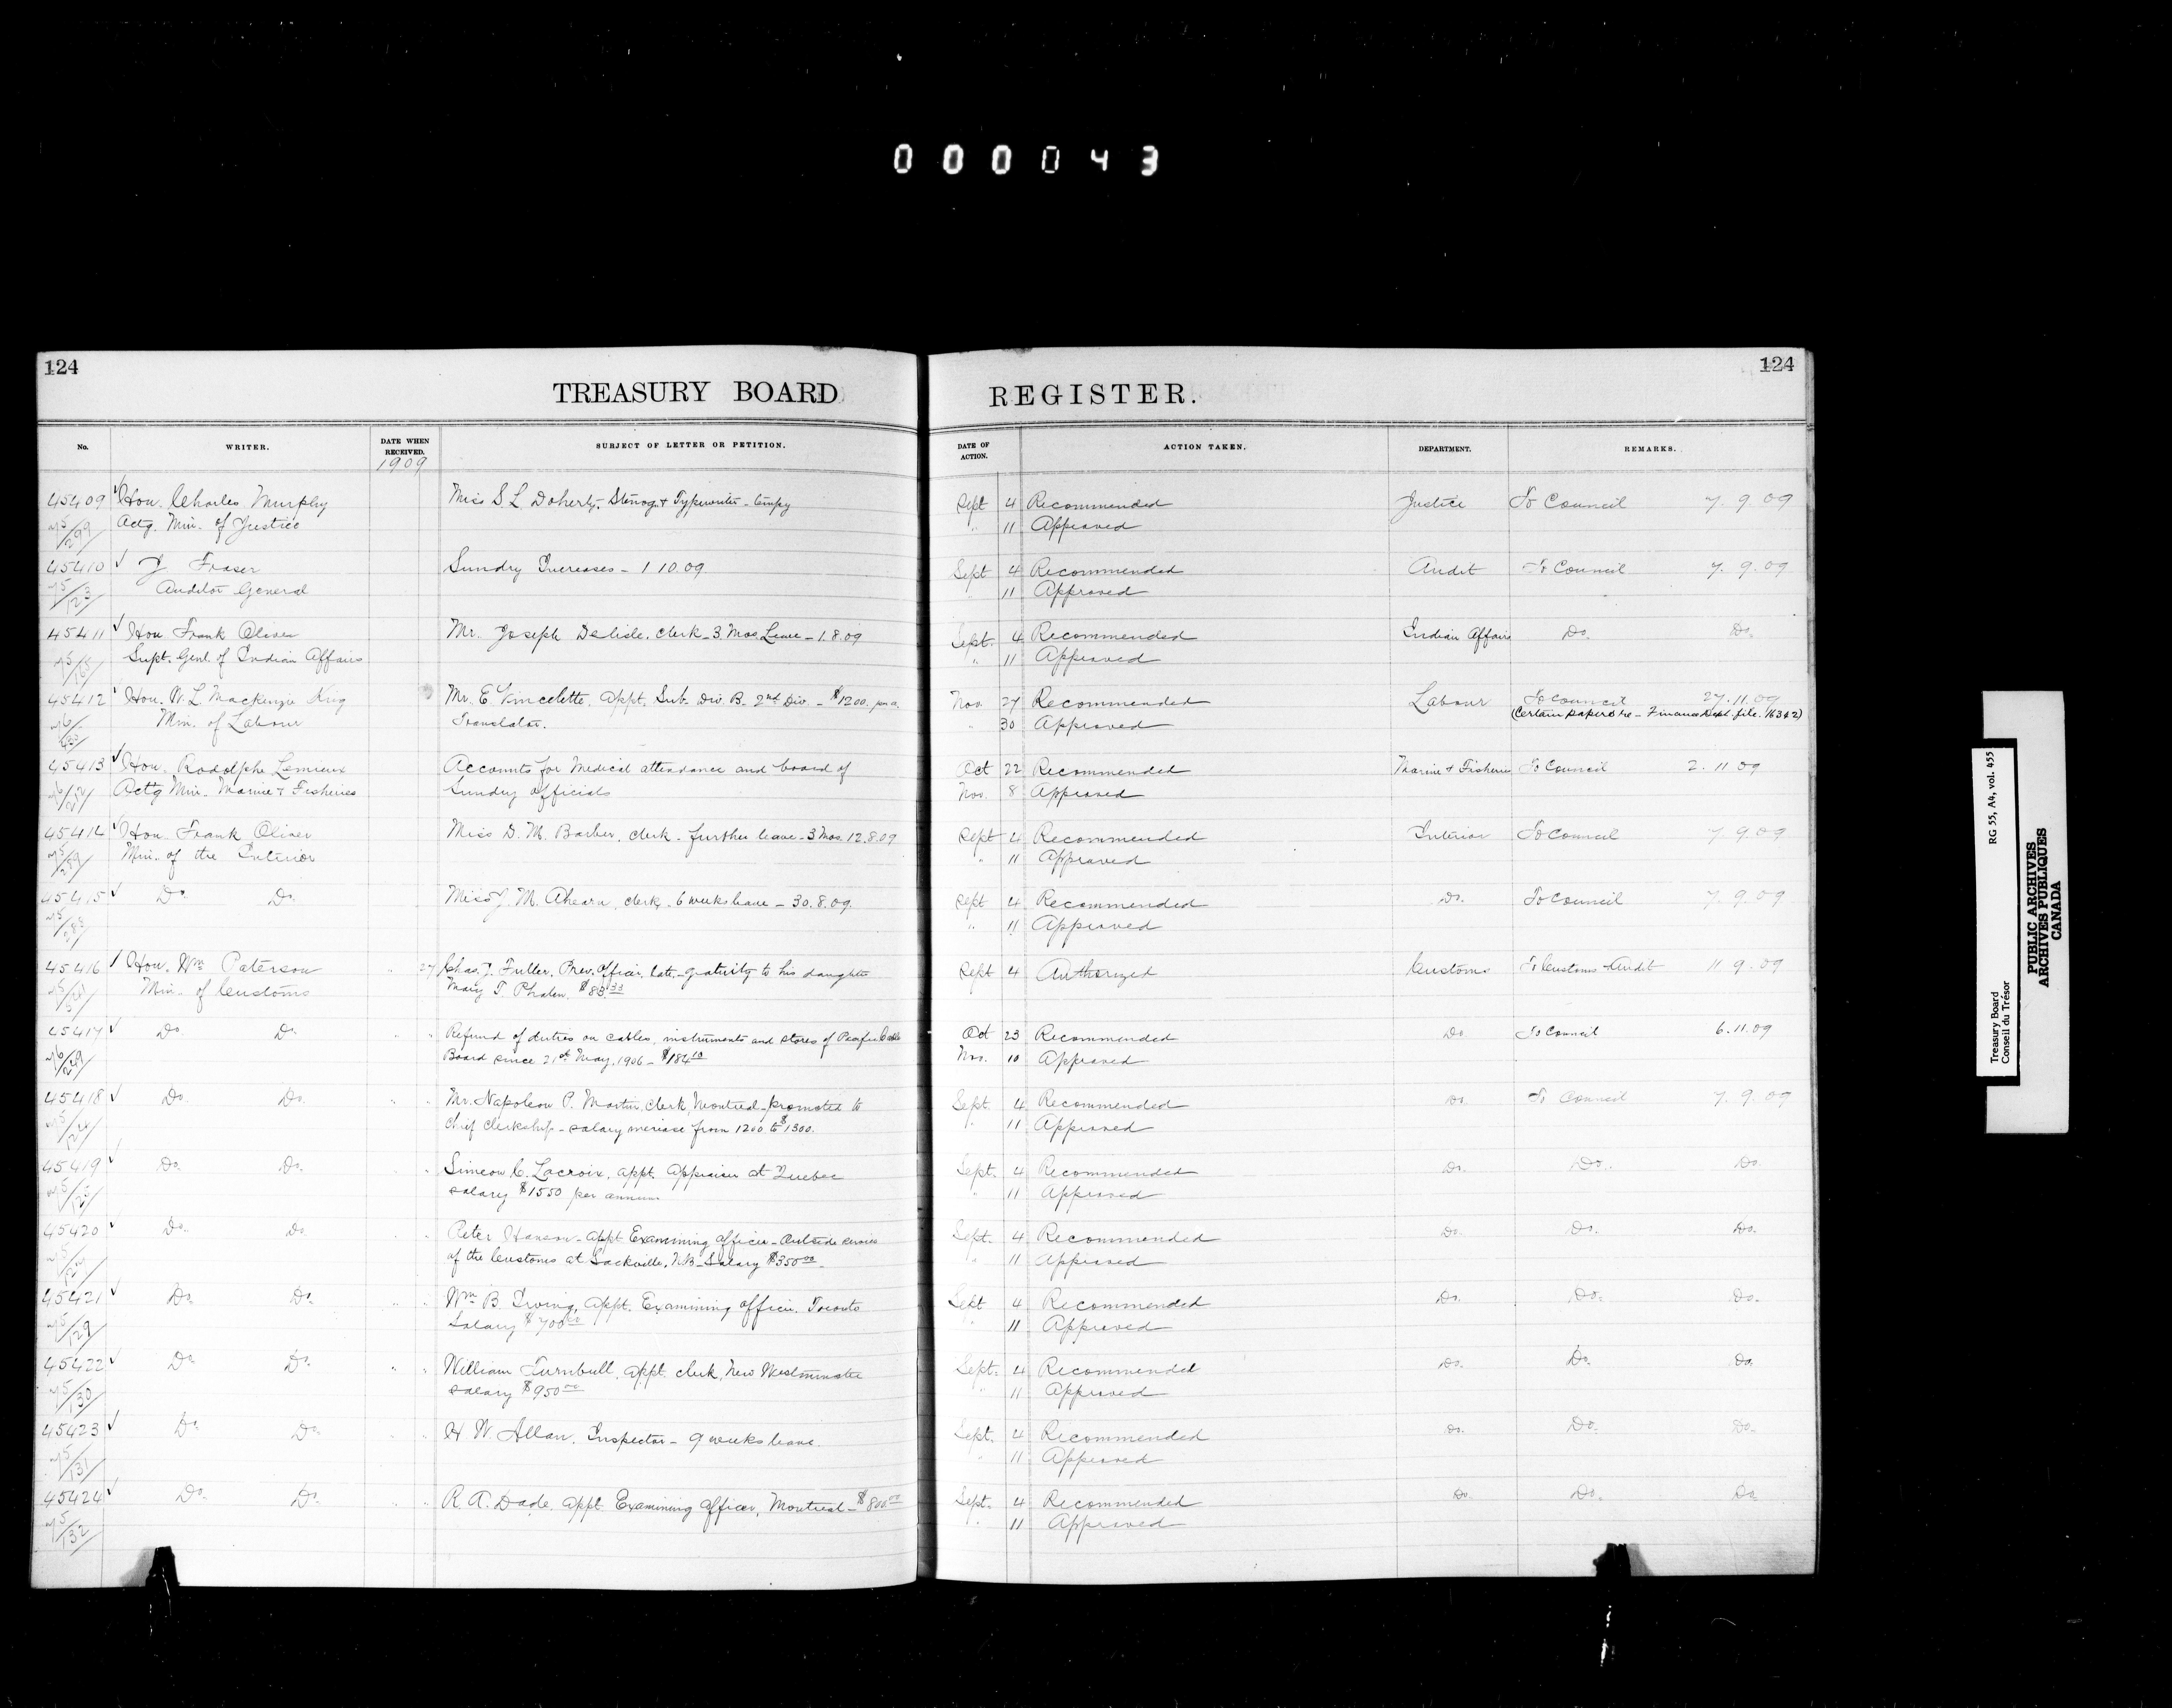 000043
124
TREASURY BOARD REGISTER.
124
No. WRITER. DATE WHEN RECEIVED. SUBJECT OF LETTER OR PETITION. DATE OF ACTION. ACTION TAKEN. DEPARTMENT. REMARKS.
1909
45409 Hon. Charles Murphy Miss S L Doherty, Stenogr. & Typewriter - tempy Sept 4 Recommended Justice To Council 7.9.09
Actg. Min. of Justice " 11 Approved
45410 J Fraser Sundry Increases - 1 10.09 Sept 4 Recommended Audit To Council 7.9.09
Auditor General " 11 Approved
45411 Hon Frank Oliver Mr. Joseph Delisle, Clerk - 3 Mos Leave - 1.8.09 Sept. 4 Recommended Indian Affairs Do. Do.
Supt. Genl. of Indian Affairs " 11 Approved
45412 Hon. W. L. Mackenzie King Mr. E Vincelette, Appt. Sub. Div B. 2nd Div. - $1200. per a. Nov. 27 Recommended Labour To Council 27.11.09
Min. of Labour Translator. " 30 Approved (Certain papers re - Finance Dept. file. 16342)
45413 Hon. Rodolphe Lemieux Accounts for Medical attendance and board of Oct 22 Recommended Marine & Fisheries To Council 2.11 09
Actg Min. Marine & Fisheries Sundry officials Nov. 8 Approved
45414 Hon. Frank Oliver Miss D. M. Barber, clerk - further leave - 3 Mos. 12.8.09 Sept 4 Recommended Interior To Council 7.9.09
Min. of the Interior " 11 Approved
45415 Do. Do. Miss J. M. Ahearn, clerk - 6 weeks leave - 30.8.09. Sept 4 Recommended Do. To Council 7.9.09
" 11 Approved
45416 Hon. Wm Paterson " 27 Chas. J. Fuller, Prev. officer, late - gratuity to his daughter Sept 4 Authorized Customs To Customs & Audit 11.9.09
Min. of Customs Mary T Phalen $83.33
45417 Do. Do. " " Refund of duties on cables, instruments and stores of Pacific Cable Oct 23 Recommended Do To Council 6.11.09
Board since 21st May, 1906 - $184.10 Nov. 10 Approved
45418 Do. Do. " " Mr. Napoleon P. Martin, Clerk, Montreal - promoted to Sept. 4 Recommended Do. To Council 7.9.09
Chief Clerkship - salary increase from 1200 to $1300. " 11 Approved
45419 Do. Do. " " Simeon C. Lacroix, appt. Appraiser at Quebec Sept. 4 Recommended Do. Do. Do.
salary $1550 per annum " 11 Approved
45420 Do. Do. " " Peter Hanson - appt Examining Officer - Outside service Sept. 4 Recommended Do. Do. Do.
of the Customs at Sackville, N.B - Salary $350.00 " 11 Approved
45421 Do. Do. " " Wm B. Irving, appt. Examining officer, Toronto Sept 4 Recommended Do. Do. Do.
Salary $700.00 " 11 Approved
45422 Do. Do. " " William Turnbull, appt. clerk, New Westminster Sept. 4 Recommended Do. Do. Do.
salary $950.00 " 11 Approved
45423 Do. Do. " " H W. Allan, Inspector - 9 weeks leave. Sept. 4 Recommended Do. Do. Do.
" 11 Approved
45424 Do. Do. " " R. A. Dade, appt Examining Officer, Montreal - $800.00 Sept. 4 Recommended Do. Do. Do.
" 11 Approved
Treasury Board RG 55, A4, vol. 455
Conseil du Trésor
PUBLIC ARCHIVES
ARCHIVES PUBLIQUES
CANADA